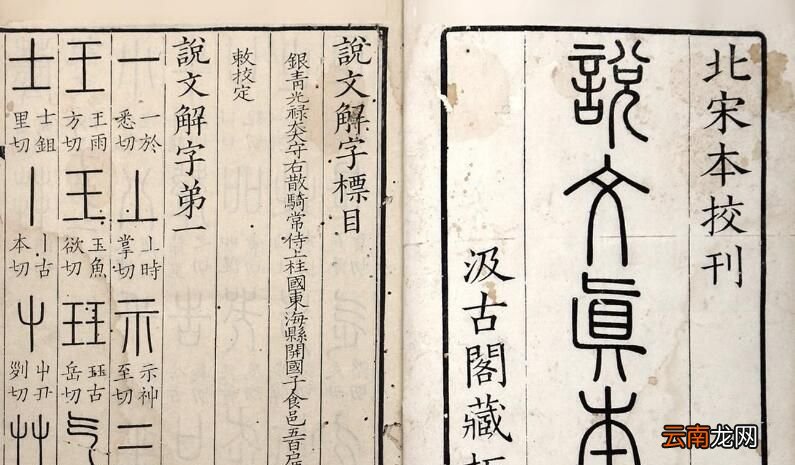 北宋本挍刊
說文眞本
汲古閣藏
說文解字標目
銀青光禄大夫守右散騎常侍上柱國東海縣開國子食邑五百戶
敕挍定
說文解字第一
一 一於悉切 丄 丄時掌切 示 示神至切 二
王 王雨方切 王 玉魚欲切 玨 玨古岳切 气
士 士鉏里切 丨 丨古本切 屮 屮丑切 艸
云南龙网